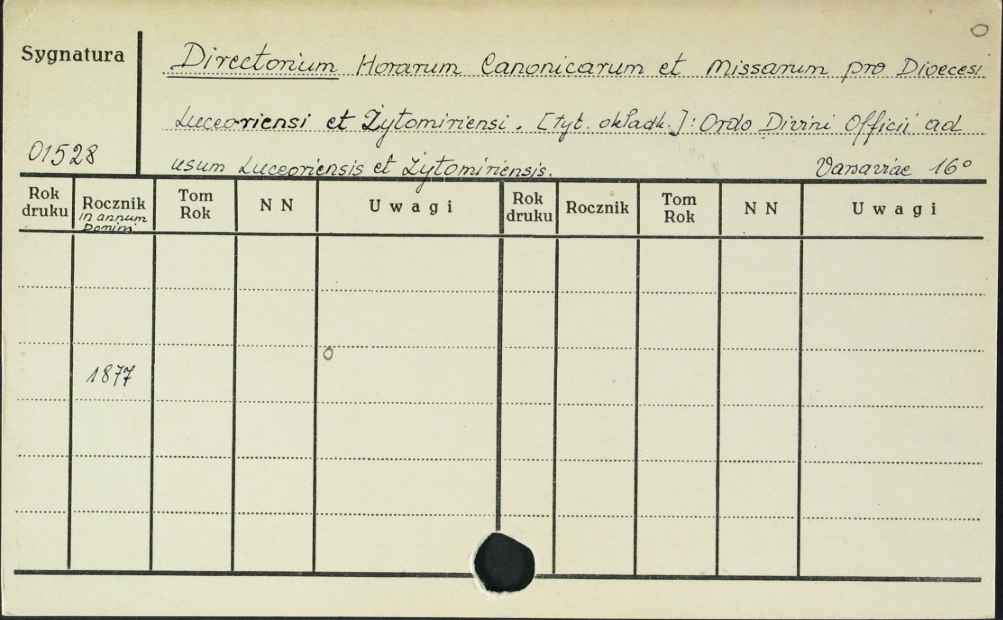 Sygnatura
Directorium Horarum Canonicarum et Missarum pro Dioecesi
Luceoriensi et Żytomiriensi. [tyt. okładk.]: Ordo Divini Officii ad
01528
usum Luceoriensis et Żytomiriensis. Varsaviae 16°
Rok druku Rocznik in annum Domini Tom Rok N N Uwagi Rok druku Rocznik Tom Rok N N Uwagi
1877